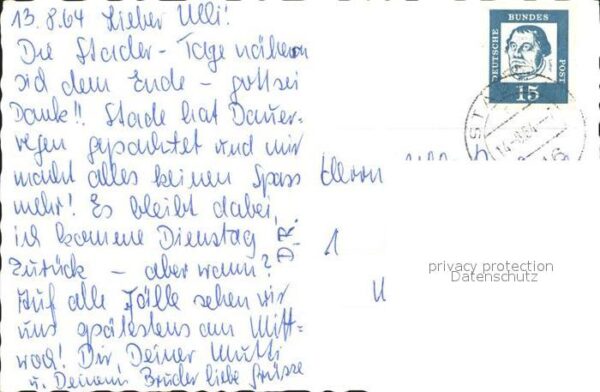 13.8.64 Lieber Ulli!
Die Stader-Tage nähern
sich dem Ende - gottsei
Dank!! Stade hat Dauer-
regen gepachtet und mir
macht alles keinen Spass
mehr! Es bleibt dabei,
ich komme Dienstag
zurück - aber wann?
Auf alle Fälle sehen wir
uns spätestens am Mitt=
woch! Dir, Deiner Mutti
u. Deinem Bruder liebe Grüsse
DEUTSCHE
BUNDES
POST
15
STADE
14-8.64
Herrn
1
privacy protection
Datenschutz